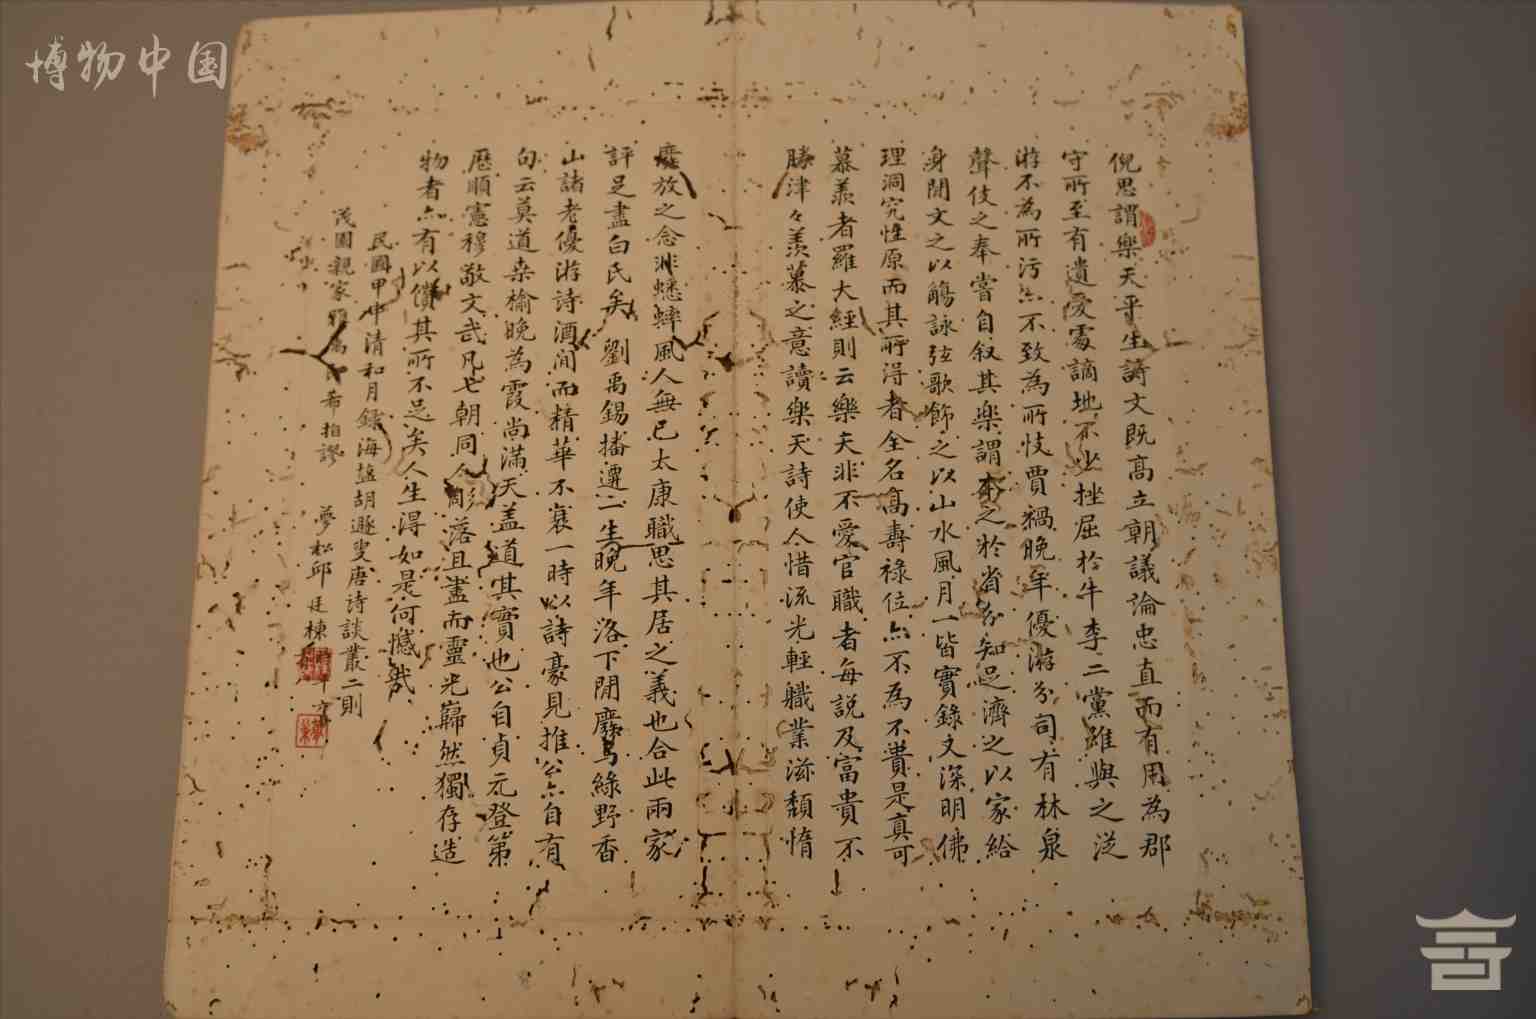 博物中国
倪思謂樂天平生詩文既高立朝議論忠直而有用為郡
守所至有遺愛處謫地不少挫屈於牛李二黨雖與之從
游不為所污亦不致為所忮賈禍晚年優游分司有林泉
聲伎之奉嘗自叙其樂謂本之於省分知足濟之以家給
身閒文之以觴詠弦歌飾之以山水風月一皆實錄文深明佛
理洞究性原而其所得者全名高壽祿位亦不為不貴是真可
慕羨者羅大經則云樂天非不愛官職者每說及富貴不
勝津々羨慕之意讀樂天詩使人惜流光輕職業滋頹惰
廢放之念非蟋蟀風人無已太康職思其居之義也合此兩家
評足盡白氏矣 劉禹錫播遷一生晚年洛下閒廢與綠野香
山諸老優游詩酒間而精華不衰一時以詩豪見推公亦自有
句云莫道桑榆晚為霞尚滿天盖道其實也公自貞元登第
歷順憲穆敬文武凡七朝同人彫落且盡而靈光巋然獨存造
物者亦有以償其所不足矣人生得如是何憾哉
民國甲申清和月錄海鹽胡遯叟唐詩談叢二則
茂園親家雅屬即希指謬 夢松邱廷棟